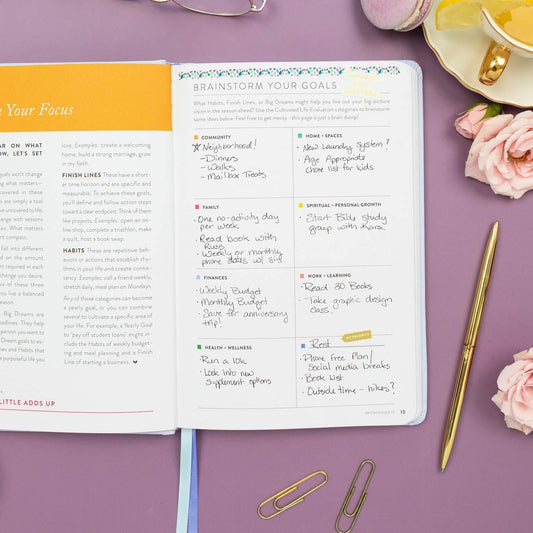 e Your Focus
AR ON WHAT
OW, LET'S SET
goals won't change
ing what matters—
covered in these
are simply a tool
e uncovered to life,
ange with seasons
es. What matters
nt compass.
fall into different
d on the amount
rt required in each
change you desire.
e of these three
you live a balanced
eason.
Big Dreams are
edlines. They help
person you want to
Dream goals to es-
es and Habits that
t a purposeful life you
LITTLE ADDS UP
love. Examples: create a welcoming
home, build a strong marriage, grow
in my faith.
FINISH LINES These have a short-
er time horizon and are specific and
measurable. To achieve these goals,
you'll define and follow action steps
toward a clear endpoint. Think of them
like projects. Examples: open an on-
line shop, complete a triathlon, make
a quilt, host a book swap.
HABITS These are repetitive behav-
iors or actions that establish rhy-
thms in your life and create consis-
tency. Examples: call a friend weekly,
stretch daily, meal plan on Mondays.
Any of these categories can become
a yearly goal, or you can combine
several to cultivate a specific area of
your life. For example, a Yearly Goal
to 'pay off student loans' might in-
clude the Habits of weekly budget-
ing and meal planning and a Finish
Line of starting a business.
BRAINSTORM YOUR GOALS
What Habits, Finish Lines, or Big Dreams might help you live out your big-picture
vision in the season ahead? Use the Cultivated Life Evaluation categories to brainstorm
some ideas below. Feel free to get messy—this page is just a brain dump!
COMMUNITY
Neighborhood!
- Dinners
- Walks
- Mailbox Treats
HOME + SPACES
- New Laundry System?
- Age Appropriate
chore list for kids
FAMILY
- One no-activity day
per week
- Read book with
Russ
- Weekly or monthly
phone dates w/ sis
SPIRITUAL + PERSONAL GROWTH
- Start Bible study
group with Kara.
FINANCES
- Weekly Budget
- Monthly Budget
- Save for anniversary
trip!
WORK + LEARNING
- Read 30 Books
- Take graphic design
class!
HEALTH + WELLNESS
- Run a 10K
- Look into new
supplement options
MY PRIORITY
Rest
- Phone Free Plan/
Social media breaks
- Book List
- Outside time - hikes?
#POWERSHEETS
15